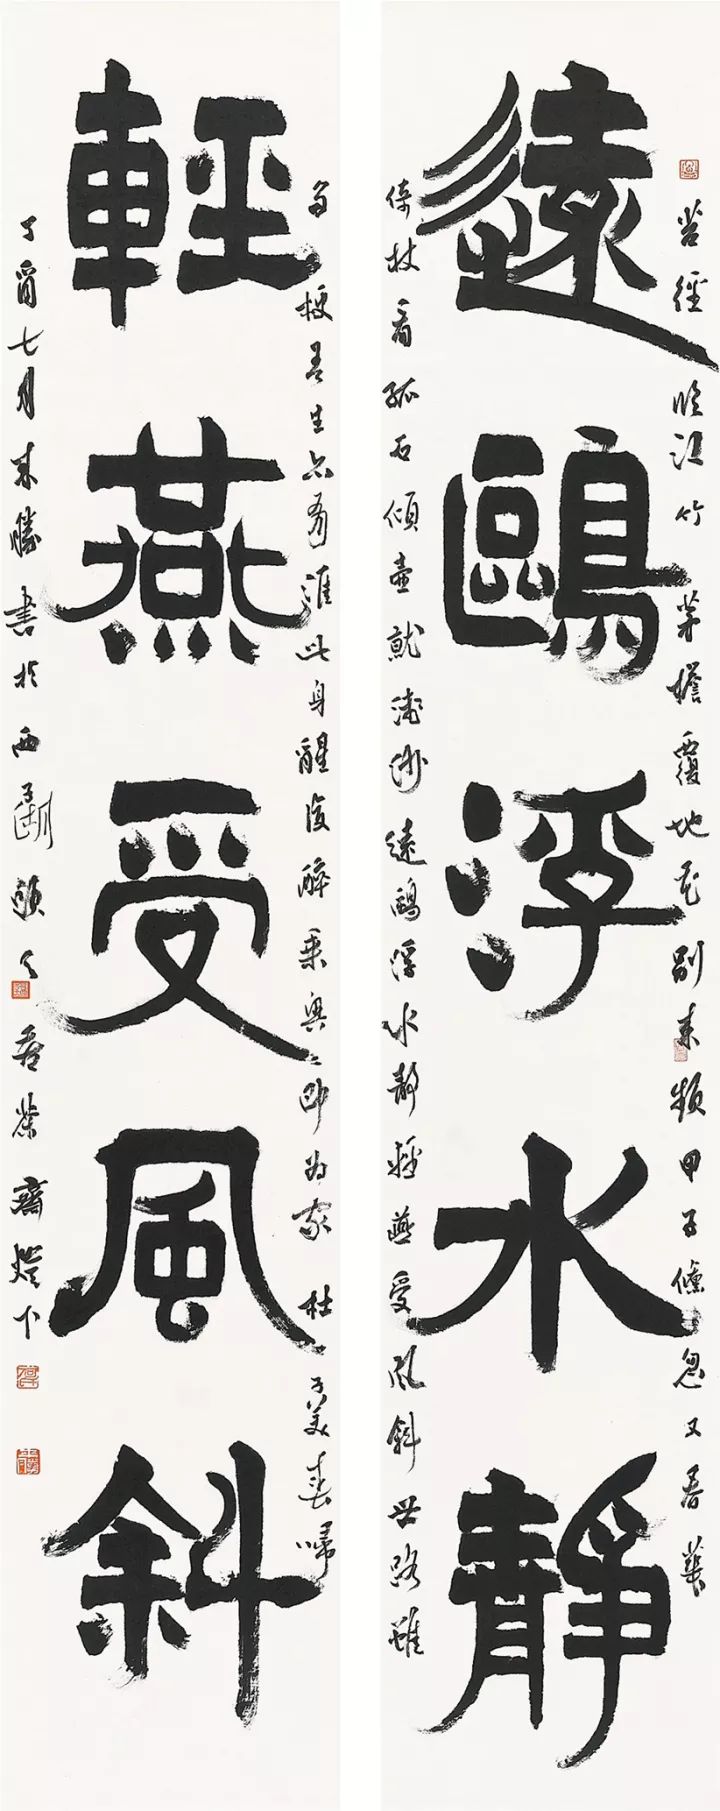 遠鷗浮水靜
輕燕受風斜
苔徑臨江竹茅檐覆地花別來頻甲子儵忽又春華
倚杖看孤石傾壺就淺沙遠鷗浮水靜輕燕受風斜世路雖
多梗吾生亦有涯此身醒復醉乘興即為家杜子美春歸
丁酉七月來勝書於西子湖頭之齋燈下